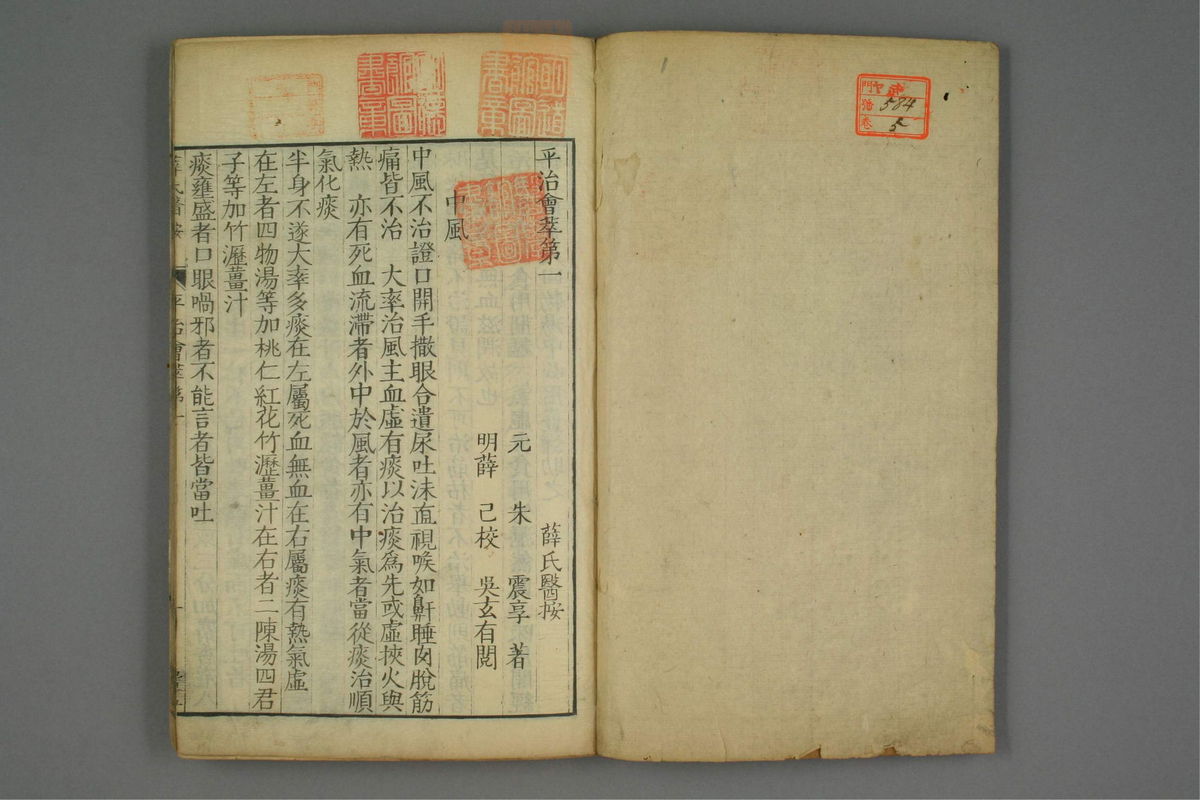 584
5
平治會萃第一　薛氏醫按
元　朱　震亨　著
明薛　己校　吳玄有閱
中風
中風不治證口開手撒眼合遺尿吐沫直視喉如鼾睡肉脫筋
痛皆不治　大率治風主血虛有痰以治痰爲先或虛挾火與
熱　亦有死血流滯者外中於風者亦有中氣者當從痰治順
氣化痰
半身不遂大率多痰在左屬死血無血在右屬痰有熱氣虛
在左者四物湯等加桃仁紅花竹瀝薑汁在右者二陳湯四君
子等加竹瀝薑汁
痰壅盛者口眼喎邪者不能言者皆當吐
薛氏醫按　平治會萃第一